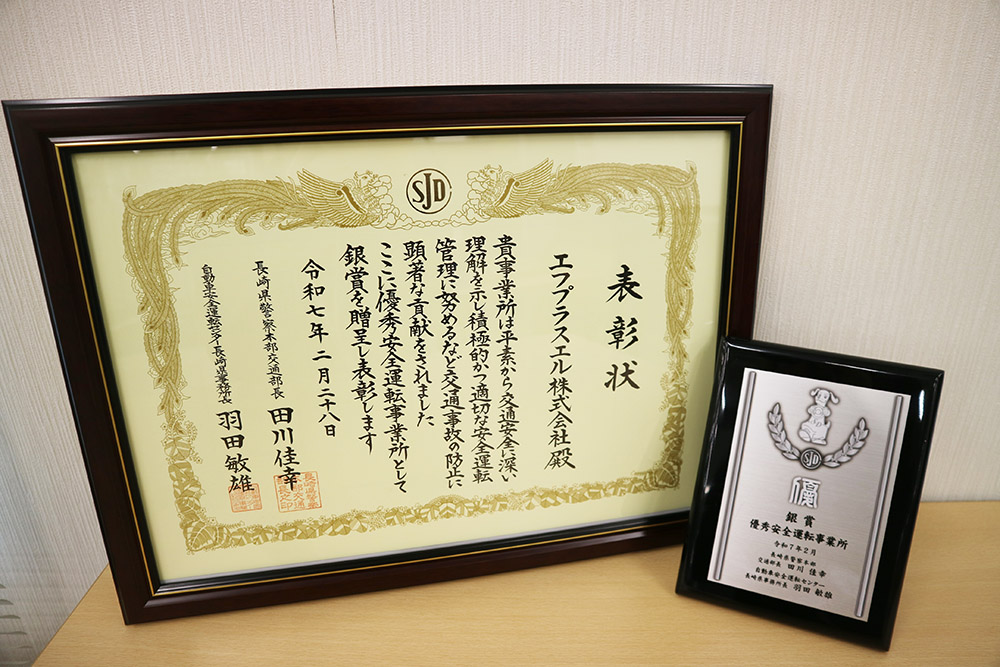 SJD
表彰状
エフプラスエル株式会社殿
貴事業所は平素から交通安全に深い
理解を示し積極的かつ適切な安全運転
管理に努めるなど交通事故の防止に
顕著な貢献をされました
ここに優秀安全運転事業所として
銀賞を贈呈し表彰します
令和七年二月二十八日
長崎県警察本部交通部長 田川佳幸
自動車安全運転センター長崎県事務所長 羽田敏雄
SJD
優
銀賞
優秀安全運転事業所
令和7年2月
長崎県警察本部
交通部長 田川 佳幸
自動車安全運転センター
長崎県事務所長 羽田 敏雄